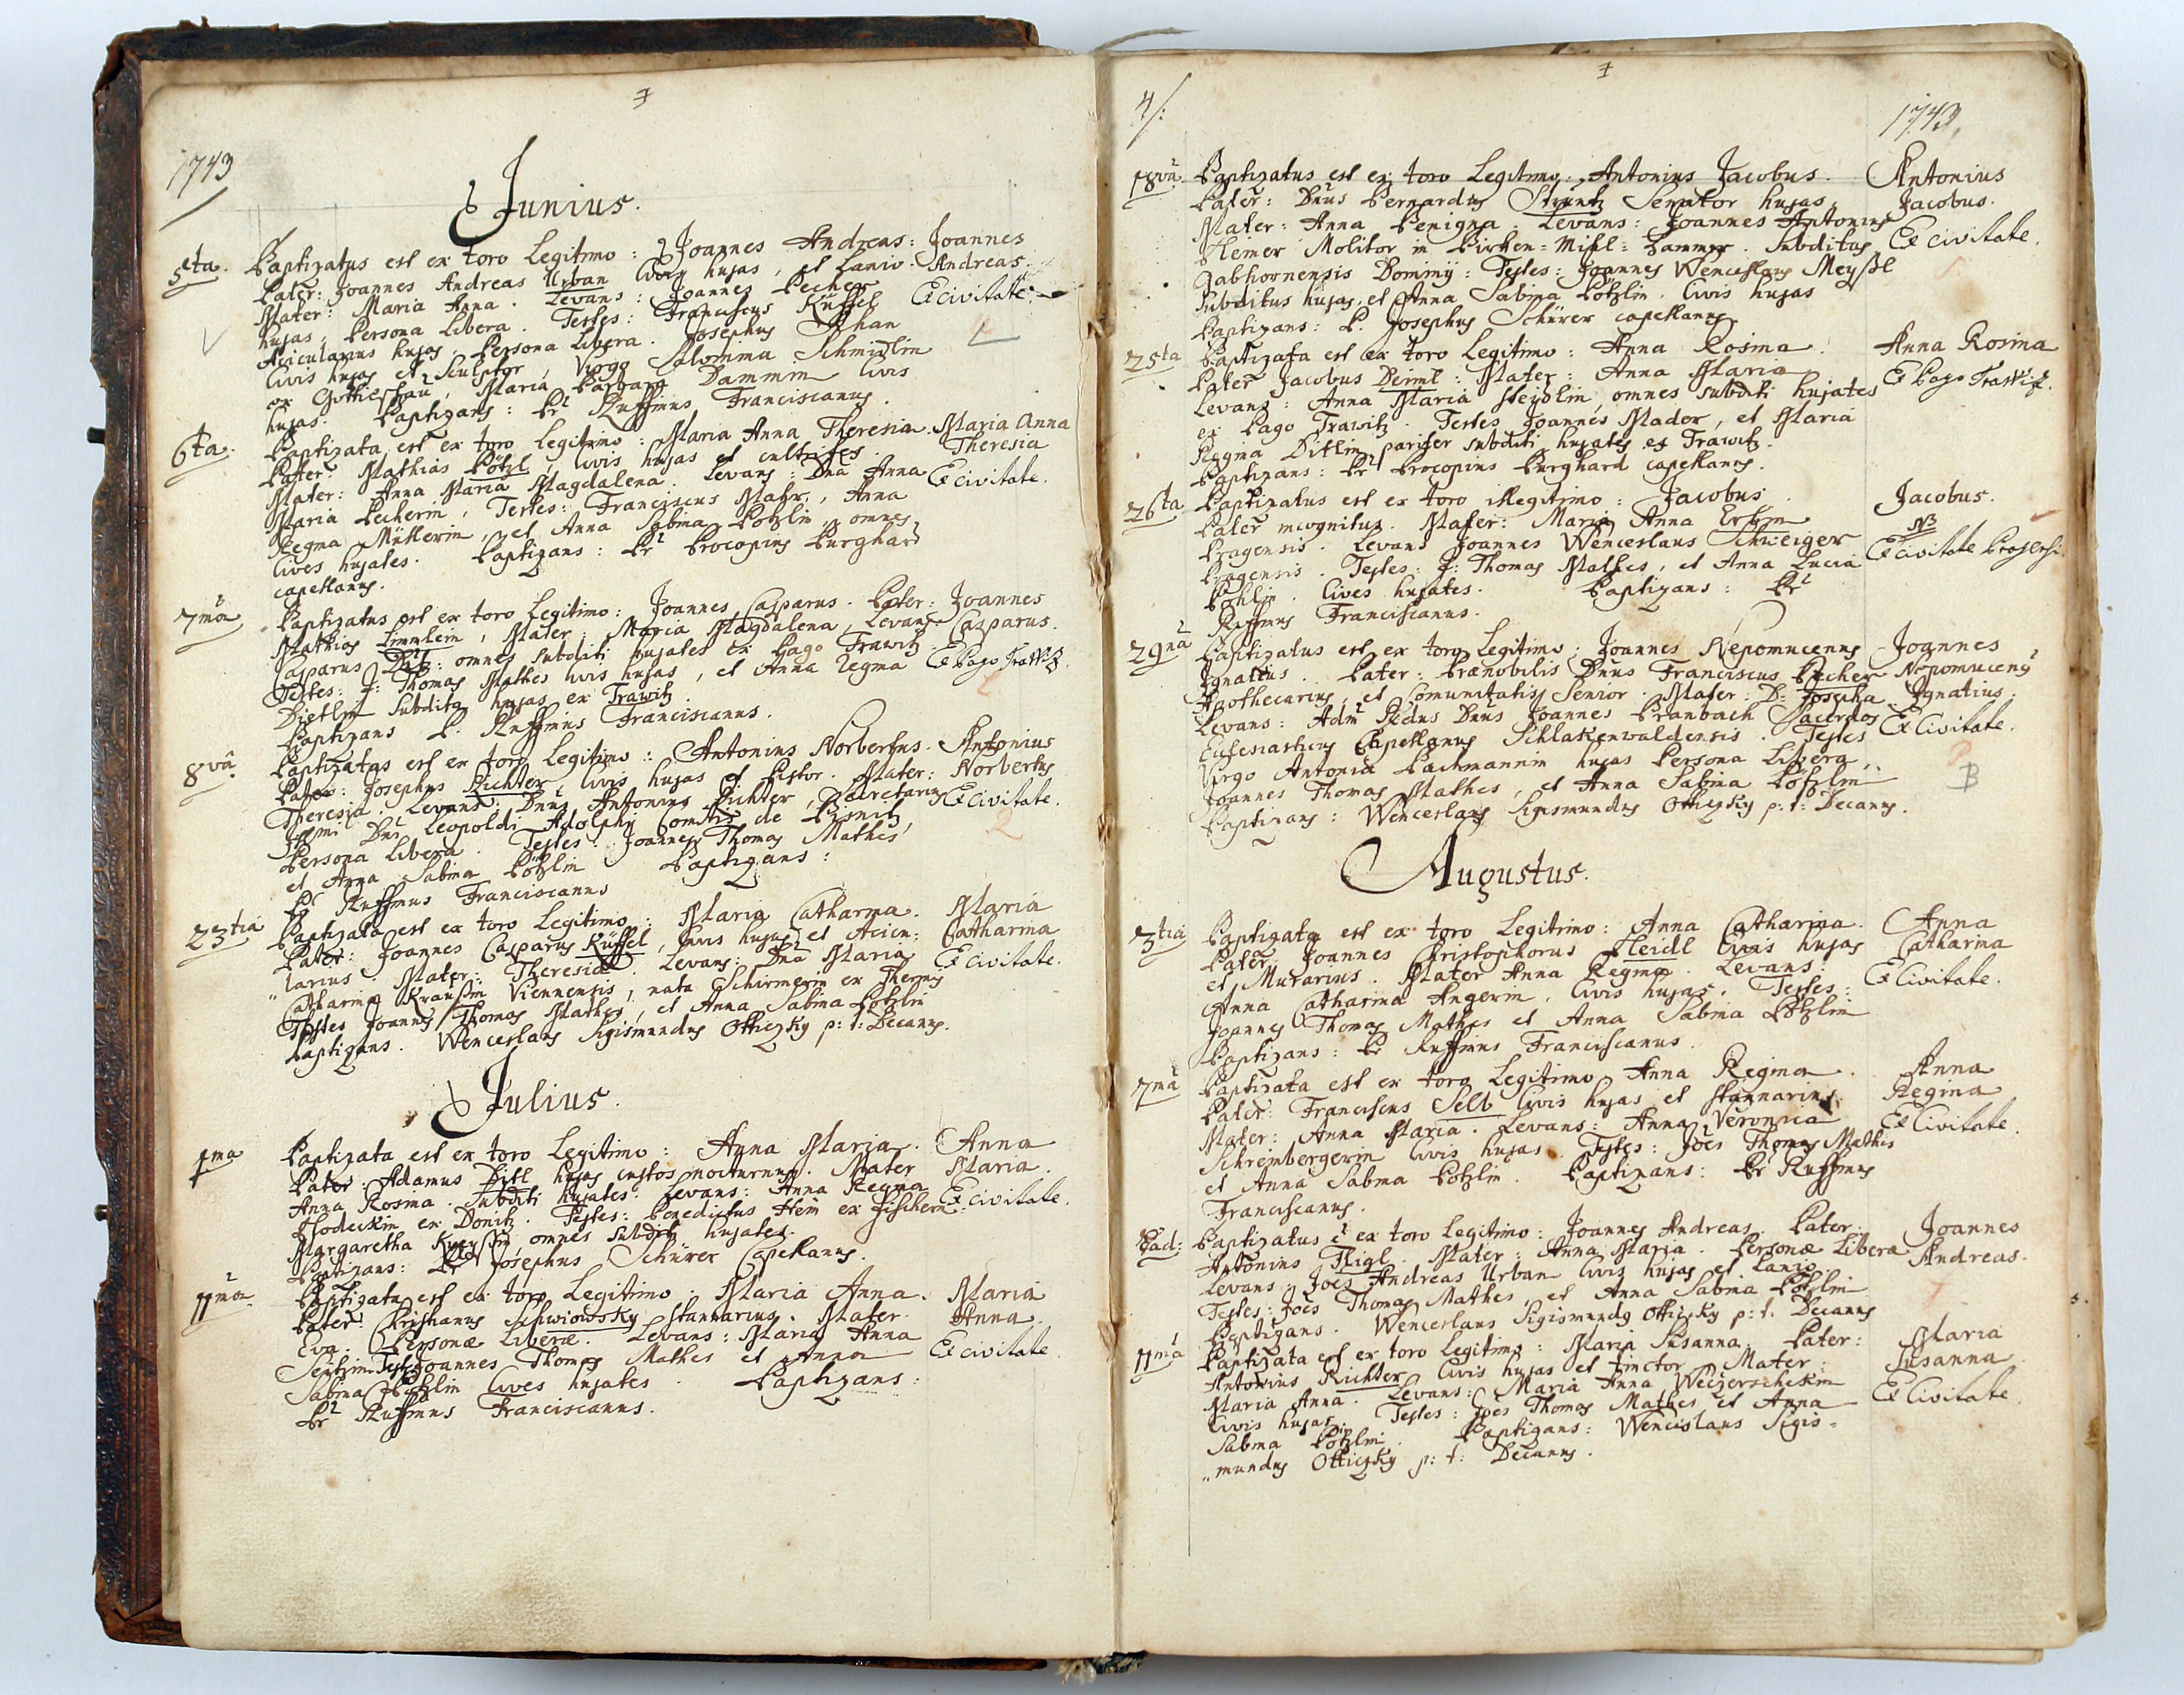 1743
Junius.
5ta. Baptizatus est ex toro Legitimo: Joannes Andreas: Joannes
Pater: Joannes Andreas Urban Civis hujas, et Lanio. Andreas.
Mater: Maria Anna. Levans: Joannes Pecher Ex civitate.
hujas, Persona Libera. Testes: Franciscus Rüffel
Acicularius hujas Persona Libera. Josephus
Civis hujas et Sculptor, Virgo Salomina Schmidlin
ex, Maria Barbara Dammin Civis
hujas. Baptizans: Pr Ruffinus Franciscanus.
6ta. Baptizata est ex toro Legitimo: Maria Anna Theresia. Maria Anna
Pater: Mathias Pötzl, Civis hujas et Theresia
Mater: Anna Maria Magdalena. Levans: Dna Anna Ex Civitate.
Maria Pecherin, Testes: Franciscus Mahr, Anna
Regina Müllerin, et Anna Sabina Potzlin, omnes
Cives hujates. Baptizans: Pr Procopius Burghard
capellanus.
7ma Baptizatus est ex toro Legitimo: Joannes Casparus. Pater: Joannes
Mathias Limmlein, Mater: Maria Magdalena, Levans Casparus.
Casparus: omnes subditi hujates ex Pago Trawitz. Ex Pago Trawitz.
Testes: J: Thomas Mathes civis hujas, et Anna Regina
Dietlin subdita hujas ex Trawitz.
Baptizans P. Ruffinus Franciscanus.
8va Baptizatus est ex toro Legitimo: Antonius Norbertus. Antonius
Pater: Josephus Richter, Civis hujas et Pistor. Mater: Norbertus
Theresia Levans: Dnus Antonius Richter, Secretarius Ex Civitate.
Dni Leopoldi Adolphi Comitis de
Persona Libera. Testes: Joannes Thomas Mathes
et Anna Sabina Pötzlin Baptizans:
Pr Ruffinus Franciscanus
23tia Baptizata est ex toro Legitimo: Maria Catharina. Maria
Pater: Joannes Casparus Rüffel, Civis hujas et Acicu: Catharina
larius. Mater: Theresia. Levans: Dna Maria Ex civitate.
Catharina Kraussin Viennensis, nata Schirmerin ex
Testes Joannes Thomas Mathes, et Anna Sabina Potzlin
Baptizans. Wenceslaus Sigismundus Otticzky p: t: Decanus.
Julius.
1ma Baptizata est ex toro Legitimo: Anna Maria. Anna
Pater: Adamus Ditl hujas custos nocturnus. Mater Maria.
Anna Rosina. subditi hujates. Levans: Anna Regina Ex civitate.
ex Donitz. Testes: Benedictus Hein ex Fischern.
Margaretha omnes subditi hujates.
Baptizans: Pr Josephus Schürer Capellanus.
11ma Baptizata est ex toro Legitimo: Maria Anna. Maria
Pater: Christianus Schwiowsky stannarius. Mater Anna.
Eva. Personæ Liberæ. Levans: Maria Anna Ex civitate
Testes Joannes Thomas Mathes et Anna
Sabina Pötzlin Cives hujates. Baptizans:
Pr Ruffinus Franciscanus.
4/: 1743
18va Baptizatus est ex toro Legitimo: Antonius Jacobus. Antonius
Pater: Dnus Bernardus Senator hujas, Jacobus.
Mater: Anna Benigna. Levans: Joannes Antonius
Heiner Molitor in Subditus Ex civitate.
Gabhornensis Dominij: Testes: Joannes Wenceslaus Meysl
Subditus hujas, et Anna Sabina Pötzlin. Civis hujas
Baptizans: P. Josephus Schürer capellanus.
25ta Baptizata est ex toro Legitimo: Anna Rosina. Anna Rosina
Pater Jacobus Deiml: Mater: Anna Maria Ex Pago Trawitz.
Levans: Anna Maria Heydlin omnes subditi hujates
ex Pago Trawitz. Testes Joannes Mader, et Maria
Regina Ditlin pariter subditi hujates ex Trawitz.
Baptizans: Pr Procopius Burghard capellanus.
26ta Baptizatus est ex toro illegitimo: Jacobus. Jacobus.
Pater incognitus. Mater: Maria Anna NB
Pragensis. Levans Joannes Wenceslaus Schweiger Ex civitate Pragensi.
Pragensis. Testes: J: Thomas Mathes, et Anna Lucia
Cives hujates. Baptizans: Pr
Ruffinus Franciscanus.
29na Baptizatus est ex toro Legitimo: Joannes Nepomucenus Joannes
Ignatius. Pater: Prænobilis Dnus Franciscus Pecher Nepomucenus
Apothecarius, et Comunitatis Senior. Mater: D: Josepha Ignatius.
Levans: Adm Rdus Dnus Joannes Branbach Sacerdos Ex Civitate.
Ecclesiasticus Capellanus Schlakenwaldensis. Testes
Virgo Antonia Bachmannin hujas Persona Libera,
Joannes Thomas Mathes, et Anna Sabina Pötzlin B
Baptizans: Wenceslaus Sigismundus Otticzky p: t: Decanus.
Augustus.
3tia Baptizata est ex toro Legitimo: Anna Catharina. Anna
Pater: Joannes Christophorus Heidl Civis hujas Catharina
et Murarius. Mater Anna Regina. Levans: Ex Civitate.
Anna Catharina Angerin, Civis hujas. Testes:
Joannes Thomas Mathes et Anna Sabina Pötzlin
Baptizans: Pr Ruffinus Franciscanus.
7ma Baptizata est ex toro Legitimo Anna Regina. Anna
Pater: Franciscus Selb Civis hujas et stannarius. Regina
Mater: Anna Maria. Levans: Anna Veronica Ex Civitate.
Schreinbergerin Civis hujas. Testes: Joes Thomas Mathes
et Anna Sabina Potzlin. Baptizans: Pr Ruffinus
Franciscanus.
Ead: Baptizatus è ex toro Legitimo: Joannes Andreas. Pater: Joannes
Antonius Mater: Anna Maria. Personæ Libera Andreas.
Levans: Joes Andreas Urban Civis hujas et Lanio.
Testes: Joes Thomas Mathes, et Anna Sabina Pötzlin
Baptizans. Wenceslaus Sigismundus Otticzky p: t. Decanus
11ma Baptizata est ex toro Legitimo: Maria Susanna. Pater: Maria
Antonius Richter Civis hujas et tinctor. Mater: Susanna
Maria Anna. Levans: Maria Anna Ex Civitate
Civis hujas. Testes: Joes Thomas Mathes et Anna
Sabina Pötzlin. Baptizans: Wenceslaus Sigis-
„mundus Otticzky p: t: Decanus.